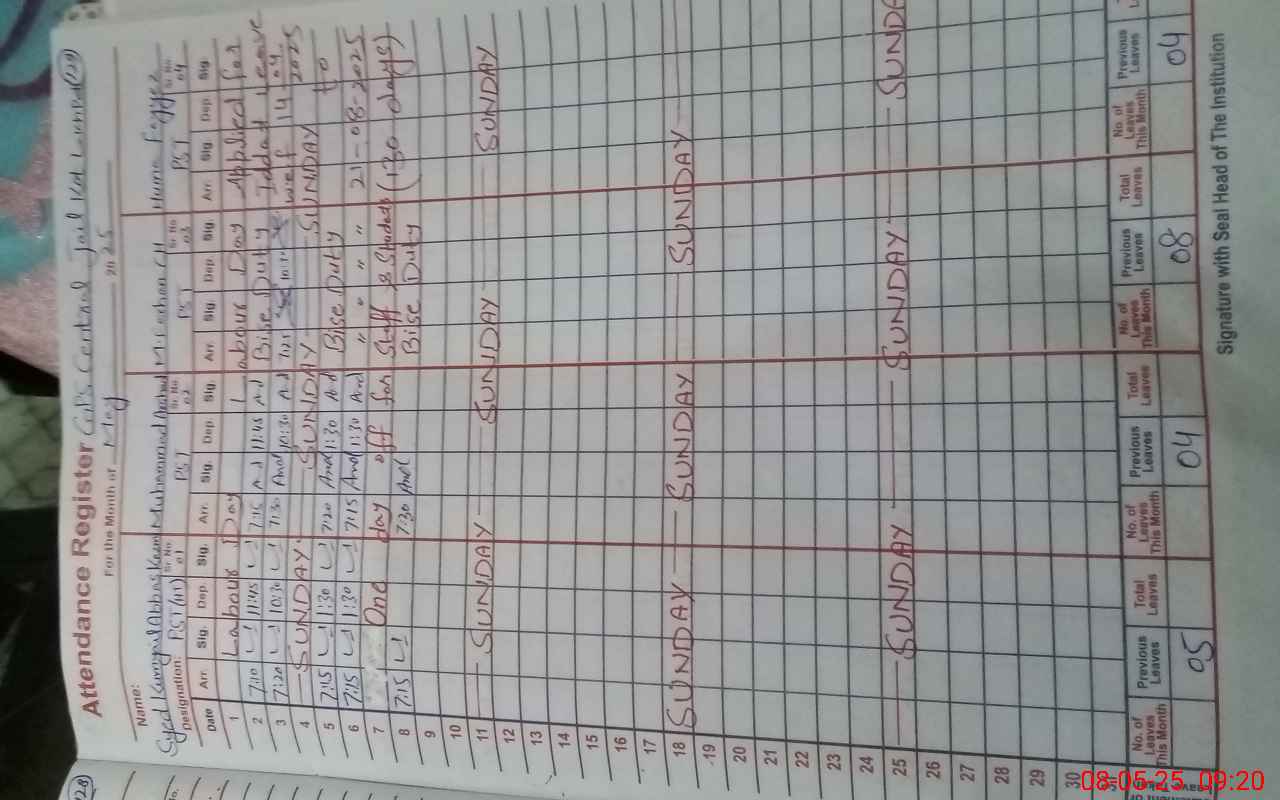 129
Attendance Register GPS Central Jail Kot
For the Month of May 2025
Name: Syed Abbas Muhammad Arshad Huma
Designation: PST (HT) Sr No 01 PST Sr No 02 PST Sr No 03 PST Sr No 04
Date Arr. Sig. Dep. Sig. Arr. Sig. Dep. Sig. Arr. Sig. Dep. Sig. Arr. Sig. Dep. Sig.
1 Labour Day Labour Day Applied for
2 7:10 11:45 7:15 11:45 Bise Duty Iddat Leave
3 7:20 10:30 7:30 10:30 7:25 10:30 w.e.f 14-04-2025
4 SUNDAY SUNDAY SUNDAY
5 7:15 1:30 7:20 1:30 Bise Duty to
6 7:15 1:30 7:15 1:30 " " " " 21-08-2025
7 One day off for Staff & Students (130 days)
8 7:15 7:30 Bise Duty
9
10
11 SUNDAY SUNDAY SUNDAY SUNDAY
12
13
14
15
16
17
18 SUNDAY SUNDAY SUNDAY SUNDAY
19
20
21
22
23
24
25 SUNDAY SUNDAY SUNDAY SUNDA
26
27
28
29
30
No. of Leaves This Month Previous Leaves Total Leaves No. of Leaves This Month Previous Leaves Total Leaves No. of Leaves This Month Previous Leaves Total Leaves No. of Leaves This Month Previous Leaves
05 04 08 04
Signature with Seal Head of The Institution
128
08-05-25 09:20